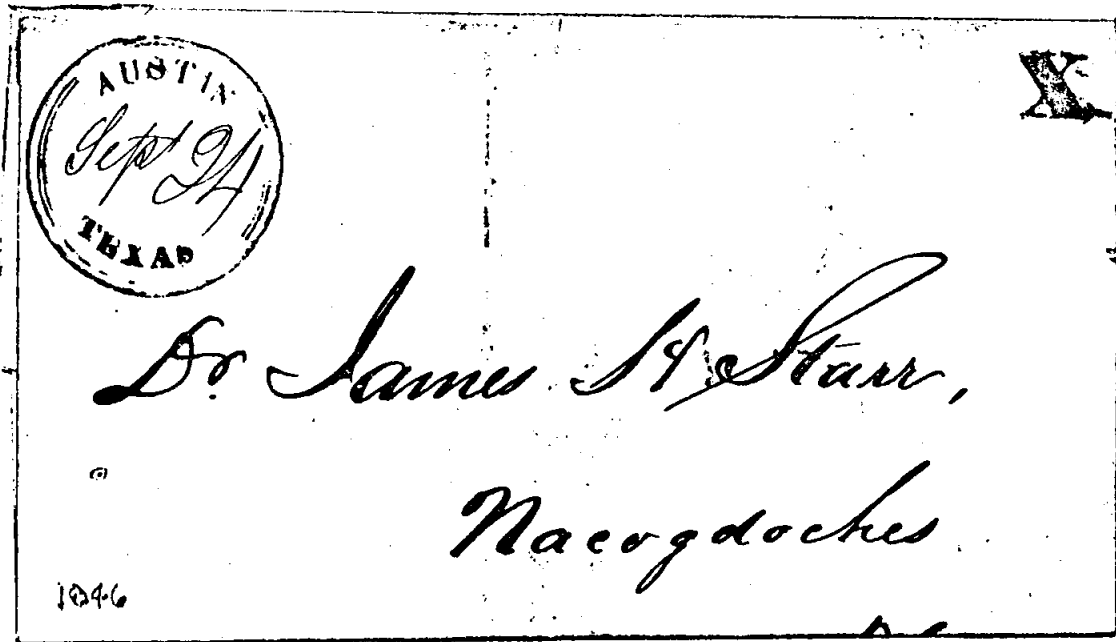 AUSTIN
Sept 24
TEXAS
X
Dr. James H Starr,
Nacogdoches
1846